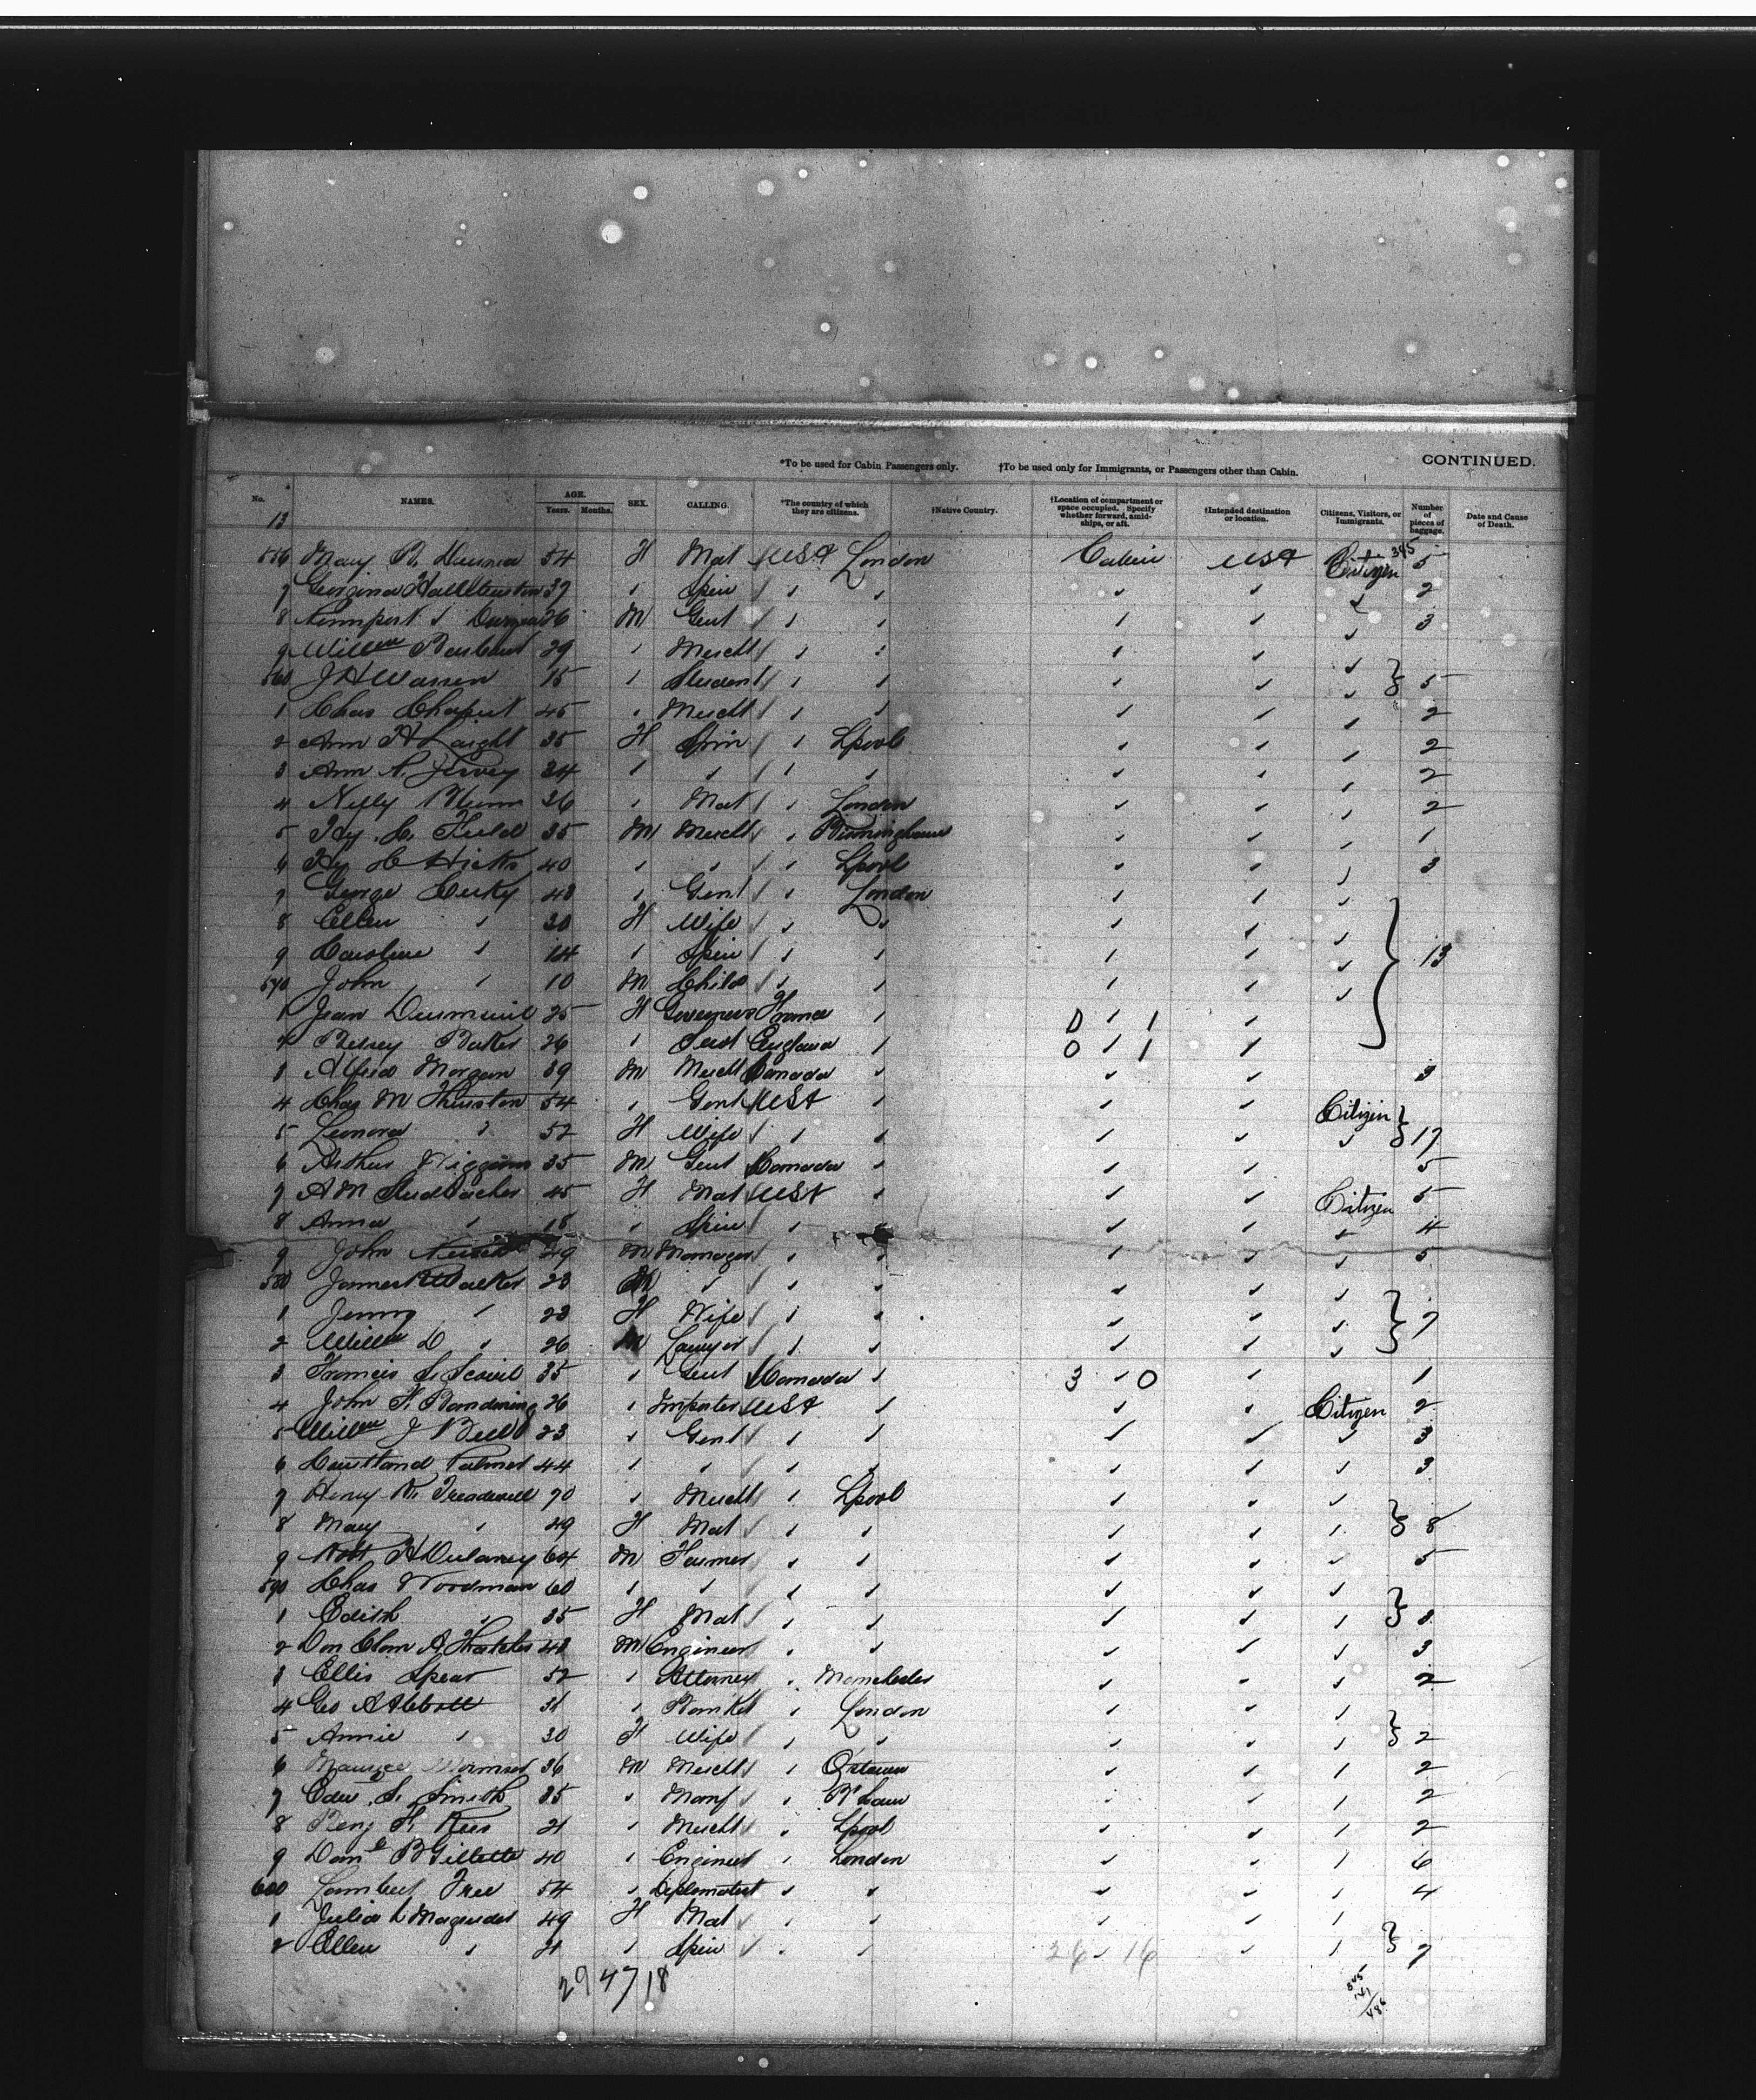 *To be used for Cabin Passengers only. †To be used only for Immigrants, or Passengers other than Cabin. CONTINUED.
No. NAMES. AGE. Years. Months. SEX. CALLING. *The country of which they are citizens. †Native Country. †Location of compartment or space occupied. Specify whether forward, amidships, or aft. †Intended destination or location. Citizens, Visitors, or Immigrants. Number of pieces of baggage. Date and Cause of Death.
13
556 Mary R. 54 F Mat USA London Cabin USA Citizen 345 5
7 Georgina 37 " Spin " " " " " 2
8 26 M Gent " " " " " 3
9 Willm 29 " Mercht " " " " "
560 J H Warren 15 " Student " " " " " } 5
1 Chas 45 " Mercht " " " " " 2
2 Ann H Laight 35 F Spin " Lpool " " " 2
3 Ann N. Jervey 34 " " " " " " " 2
4 Nelly 36 " Mat " London " " " 2
5 Hy. C. Field 35 M Mercht " Birmingham " " " 1
6 Hy C Hicks 40 " " " Lpool " " " 3
7 George 48 " Gent " London " " "
8 Ellen " 30 F Wife " " " " "
9 Caroline " 14 " Spin " " " " " } 13
570 John " 10 M Child " " " " "
1 Jean Dumenil 25 F Governess France " 0 " 1 "
2 Betsey Baker 26 " England " 0 " 1 "
3 Alfred Morgan 39 M Mercht Canada " " " 3
4 Chas M Thurston 54 " Gent USA " " " Citizen
5 Leonora " 52 F Wife " " " " " } 17
6 Arthur Wiggins 35 M Gent Canada " " " 5
7 A M Studebacher 45 F Mat USA " " " Citizen 5
8 Anna " 18 " Spin " " " " " 4
9 John 49 M Manager " " " " " 5
580 James Walker 23 M " " " " " "
1 Jenny " 23 F Wife " " " " " } 7
2 Willm D " 26 M Lawyer " " " " "
3 Francis S. Scovil 35 " Gent Canada " 3 " 0 " 1
4 John F. 26 " Importer USA " " " Citizen 2
5 Willm J Bell 23 " Gent " " " " " 3
6 Courtland Palmer 44 " " " " " " " 3
7 Henry R. Treadwell 70 " Mercht " Lpool " " "
8 Mary " 49 F Mat " " " " " } 8
9 H Dulaney 64 M Farmer " " " " " 5
590 Chas Woodman 60 " " " " " " "
1 Edith " 35 F Mat " " " " " } 3
2 A Thatcher 48 M Engineer " " " " " 3
3 Ellis Spear 52 " Attorney " Manchester " " " 2
4 Geo A Abbott 31 " Banker " London " " "
5 Annie " 30 F Wife " " " " " } 2
6 Maurice Wormser 36 M Mercht " " " " 2
7 Edw. S. Smith 35 " Manf " B'ham " " " 2
8 Benj F. Rees 21 " Mercht " Lpool " " " 2
9 Danl B Gillette 40 " Engineer " London " " " 6
600 Lambert Tree 54 " Diplomatist " " " " " 4
1 Julia L Magruder 49 F Mat " " " " "
2 Ellen " 21 " Spin " " 26 " 16 " " } 7
29 47 18
345
141
486